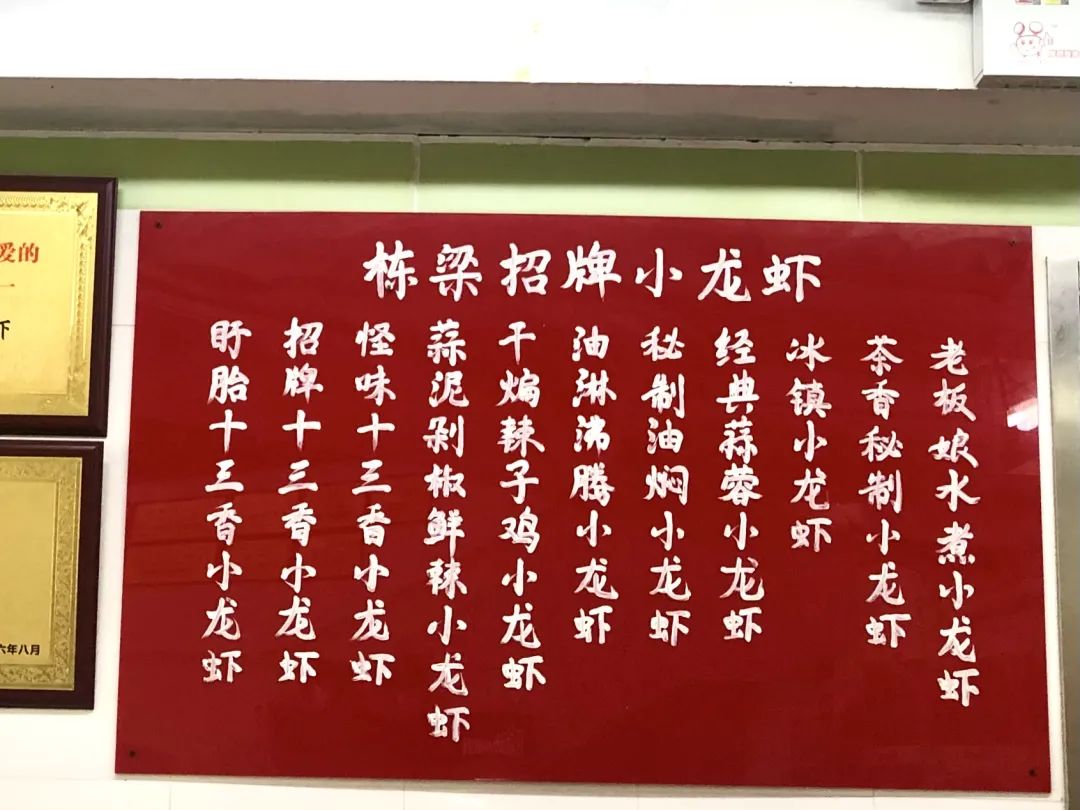 栋梁招牌小龙虾
老板娘水煮小龙虾
茶香秘制小龙虾
冰镇小龙虾
经典蒜蓉小龙虾
秘制油焖小龙虾
油淋沸腾小龙虾
干煸辣子鸡小龙虾
蒜泥剁椒鲜辣小龙虾
怪味十三香小龙虾
招牌十三香小龙虾
盱胎十三香小龙虾
爱的
六年八月